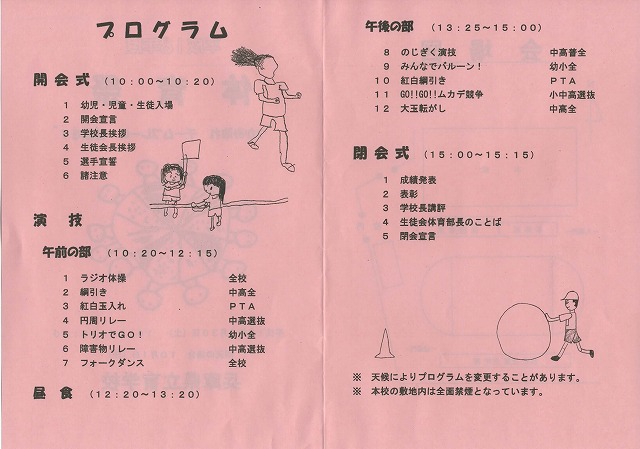 プログラム
開会式 （10：00～10：20）
1 幼児・児童・生徒入場
2 開会宣言
3 学校長挨拶
4 生徒会長挨拶
5 選手宣誓
6 諸注意
演技
午前の部 （10：20～12：15）
1 ラジオ体操 全校
2 綱引き 中高全
3 紅白玉入れ ＰＴＡ
4 円周リレー 中高選抜
5 トリオでＧＯ！ 幼小全
6 障害物リレー 中高選抜
7 フォークダンス 全校
昼食 （12：20～13：20）
午後の部 （13：25～15：00）
8 のじぎく演技 中高普全
9 みんなでバルーン！ 幼小全
10 紅白綱引き ＰＴＡ
11 GO!!GO!!ムカデ競争 小中高選抜
12 大玉転がし 中高全
閉会式 （15：00～15：15）
1 成績発表
2 表彰
3 学校長講評
4 生徒会体育部長のことば
5 閉会宣言
※ 天候によりプログラムを変更することがあります。
※ 本校の敷地内は全面禁煙となっています。